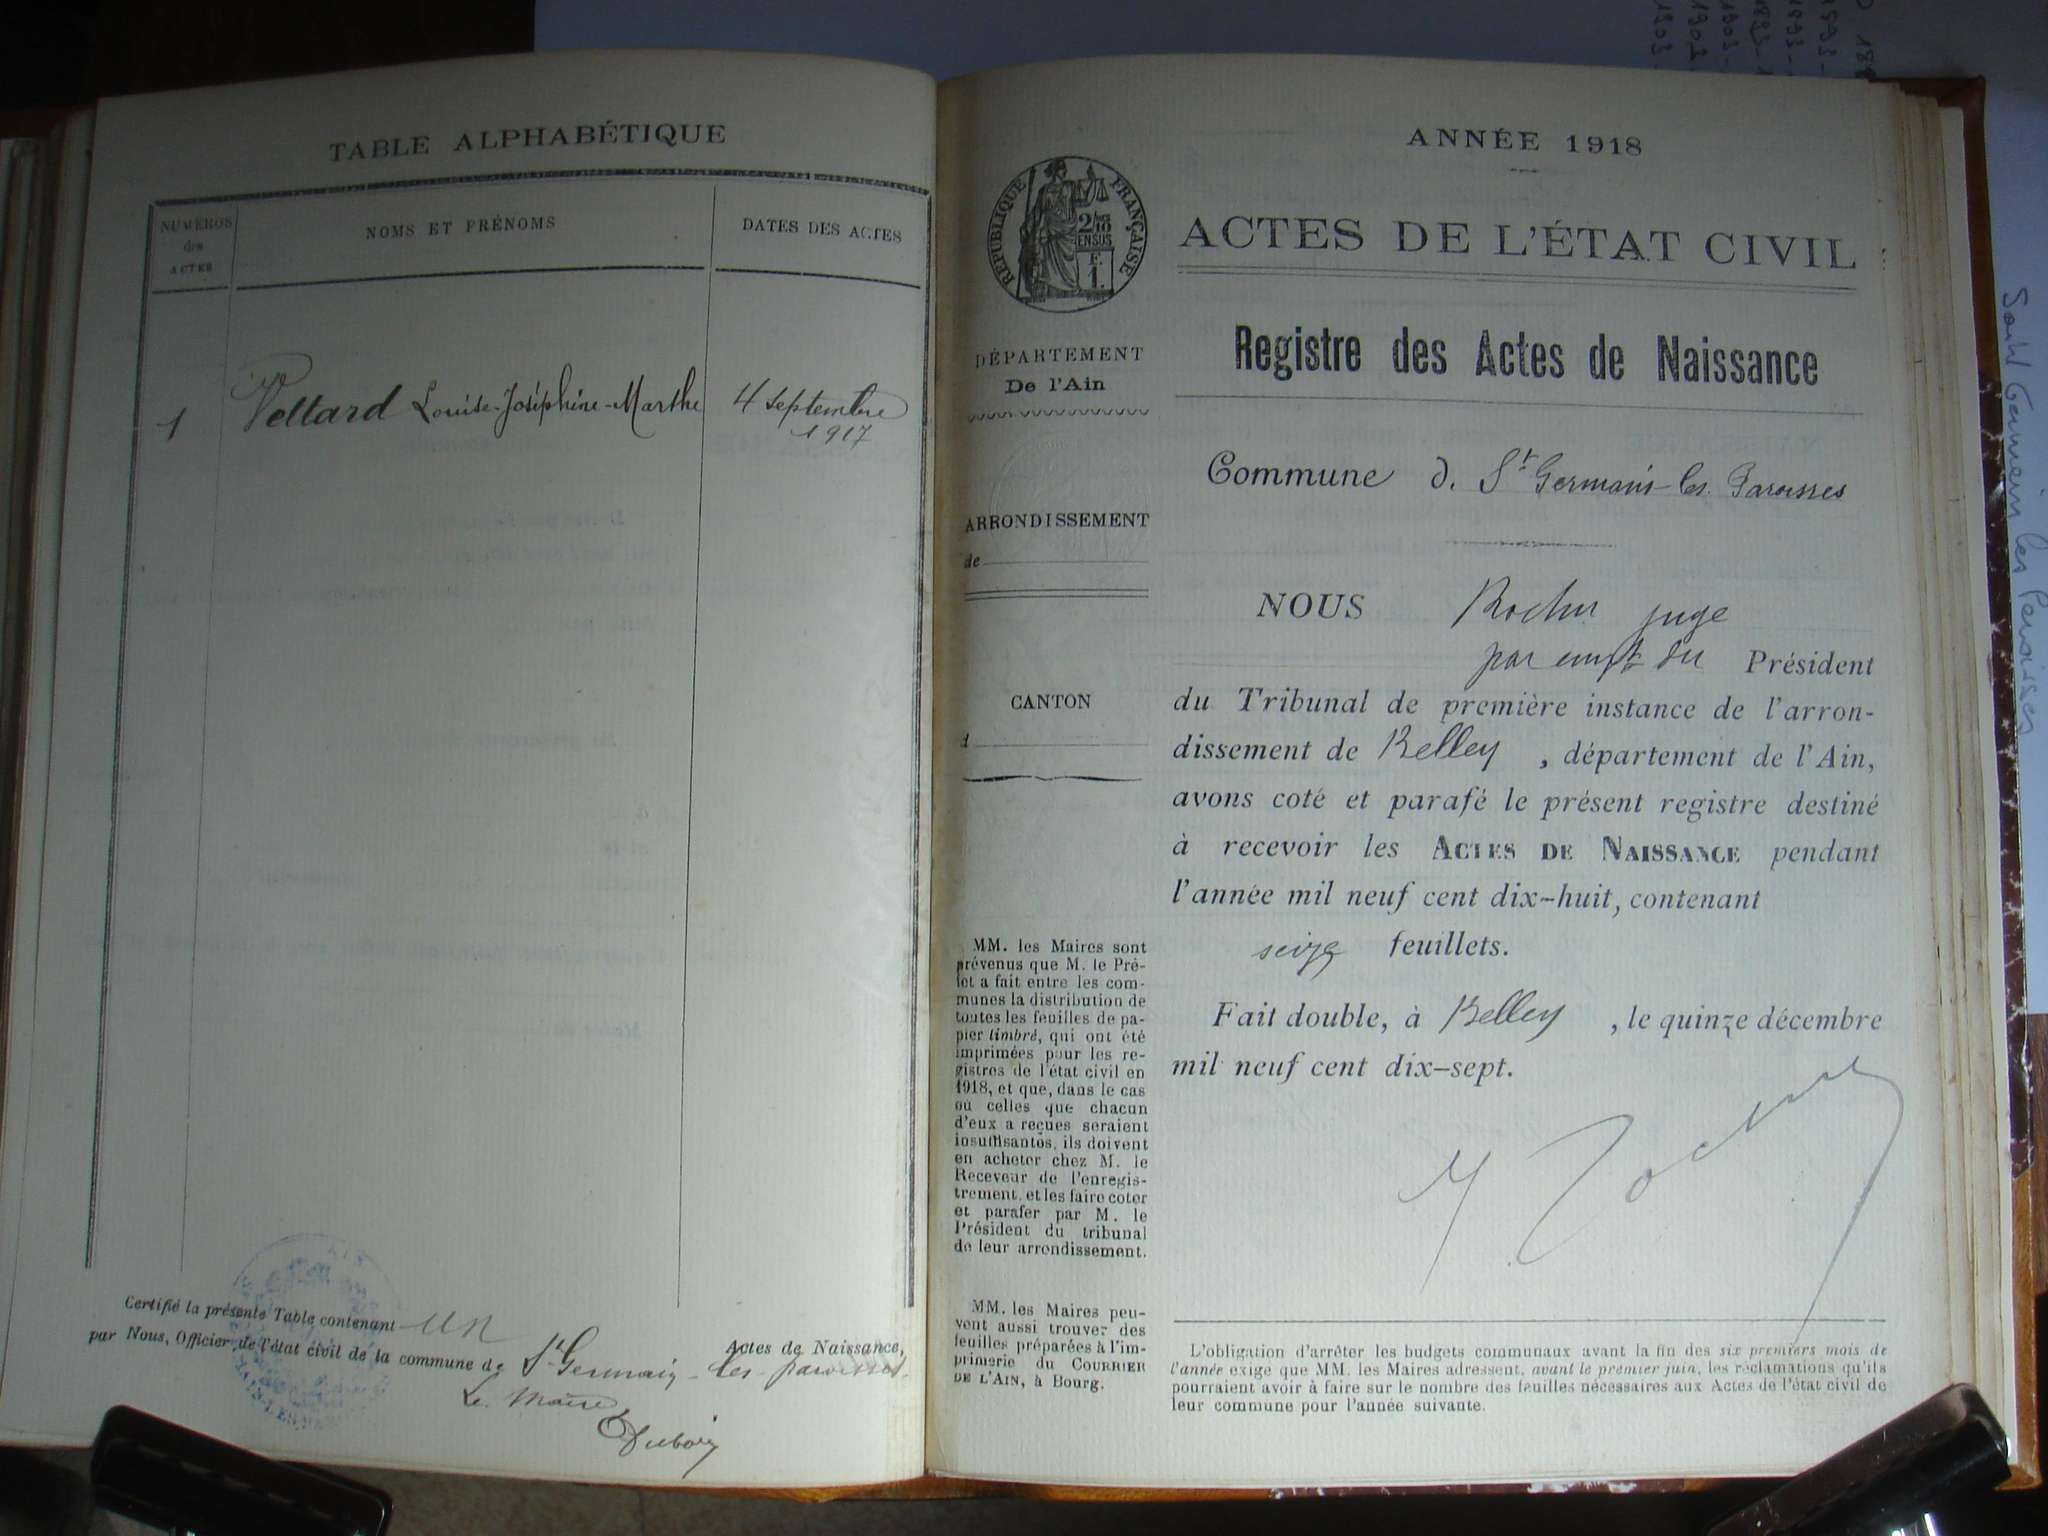 TABLE ALPHABÉTIQUE
NUMÉROS
des
ACTES
NOMS ET PRÉNOMS
DATES DES ACTES
1
Vettard Louise-Joséphine-Marthe
4 septembre
1917
Certifié la présente Table contenant un Actes de Naissance,
par Nous, Officier de l'état civil de la commune de St Germain-les-paroisses.
Le Maire
Dubois
ANNÉE 1918
RÉPUBLIQUE FRANÇAISE
2/10
EN SUS
F.
1.
ACTES DE L'ÉTAT CIVIL
DÉPARTEMENT
De l'Ain
ARRONDISSEMENT
de
CANTON
d
MM. les Maires sont
prévenus que M. le Pré-
fet a fait entre les com-
munes la distribution de
toutes les feuilles de pa-
pier timbré, qui ont été
imprimées pour les re-
gistres de l'état civil en
1918, et que, dans le cas
où celles que chacun
d'eux a reçues seraient
insuffisantes, ils doivent
en acheter chez M. le
Receveur de l'enregis-
trement, et les faire coter
et parafer par M. le
Président du tribunal
de leur arrondissement.
MM. les Maires peu-
vent aussi trouver des
feuilles préparées à l'im-
primerie du COURRIER
DE L'AIN, à Bourg.
Registre des Actes de Naissance
Commune d. St Germain-les-Paroisses
NOUS Rocher juge
par empt du Président
du Tribunal de première instance de l'arron-
dissement de Belley, département de l'Ain,
avons coté et parafé le présent registre destiné
à recevoir les ACTES DE NAISSANCE pendant
l'année mil neuf cent dix-huit, contenant
seize feuillets.
Fait double, à Belley, le quinze décembre
mil neuf cent dix-sept.
L'obligation d'arrêter les budgets communaux avant la fin des six premiers mois de
l'année exige que MM. les Maires adressent, avant le premier juin, les réclamations qu'ils
pourraient avoir à faire sur le nombre des feuilles nécessaires aux Actes de l'état civil de
leur commune pour l'année suivante.
Saint Germain les Paroisses